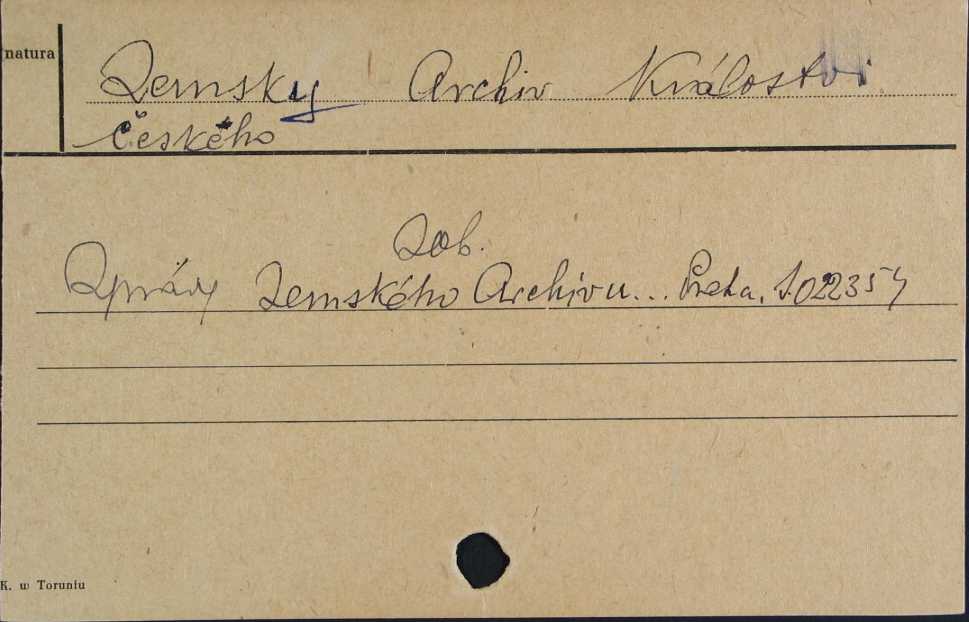 natura
Zemsky Archiv Královstvi
Českého
Zob.
Zprávy Zemského Archivu... Praha. S.022354
K. w Toruniu